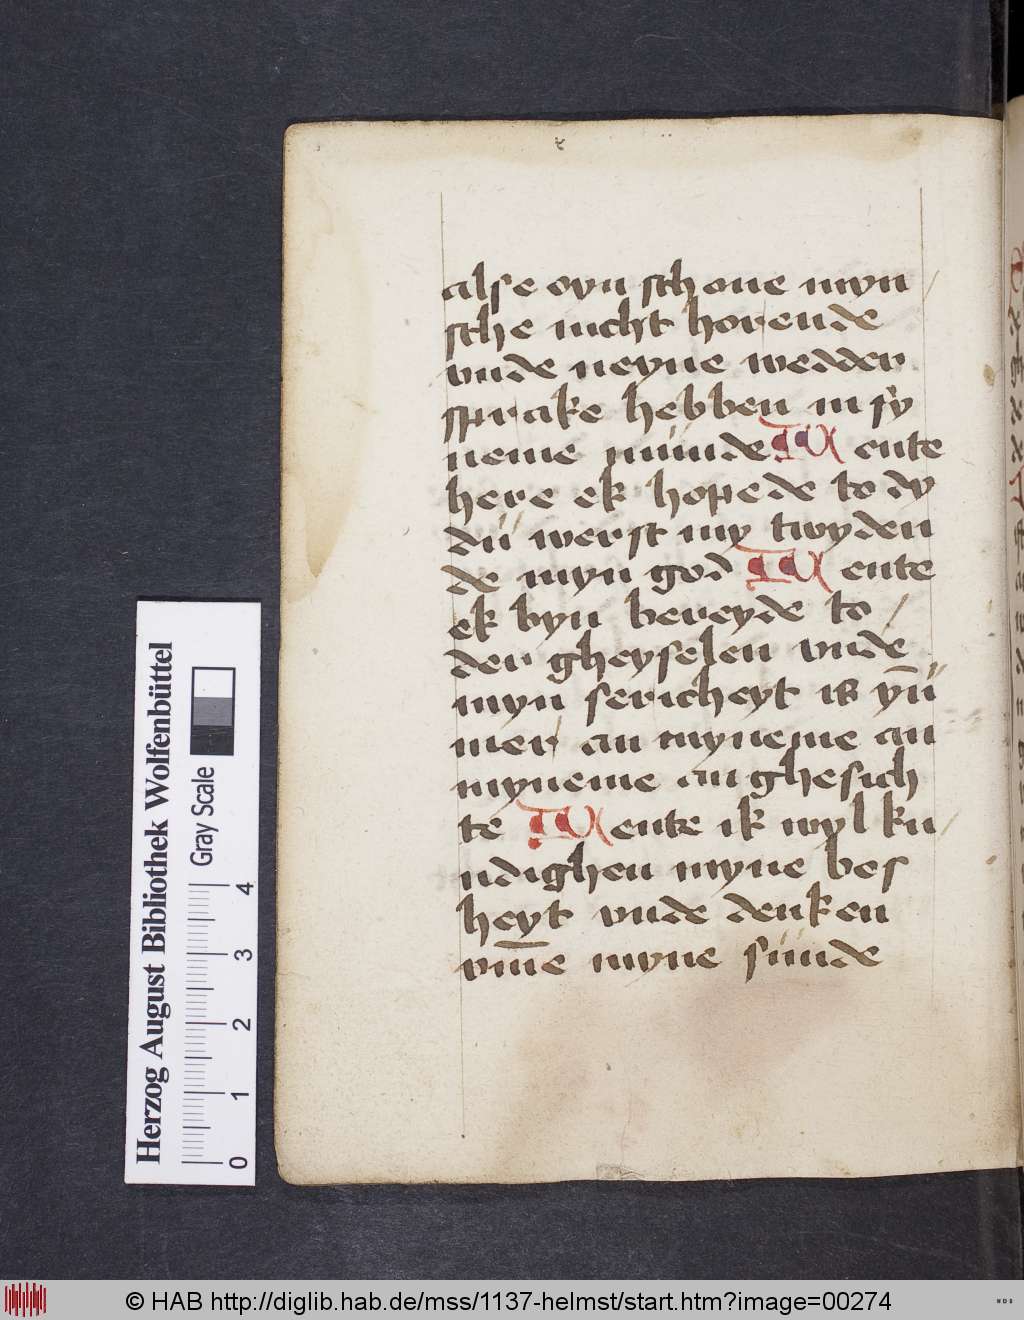 alse oyn schone myn
sche nicht horende
vnde neyne wedder
sprake hebben in sy
neme munde Wente
here ek hopede to dy
du werst my twyden
de myn god Wente
ek byn bereyde to
den gheyselen vnde
myn sericheyt is yn̄
mer an myneme an
myneme anghesich
te Wente ik wyl ku
ndighen myne bos
heyt vnde denken
vm̄e myne sunde
Herzog August Bibliothek Wolfenbüttel
Gray Scale
0 1 2 3 4
© HAB http://diglib.hab.de/mss/1137-helmst/start.htm?image=00274